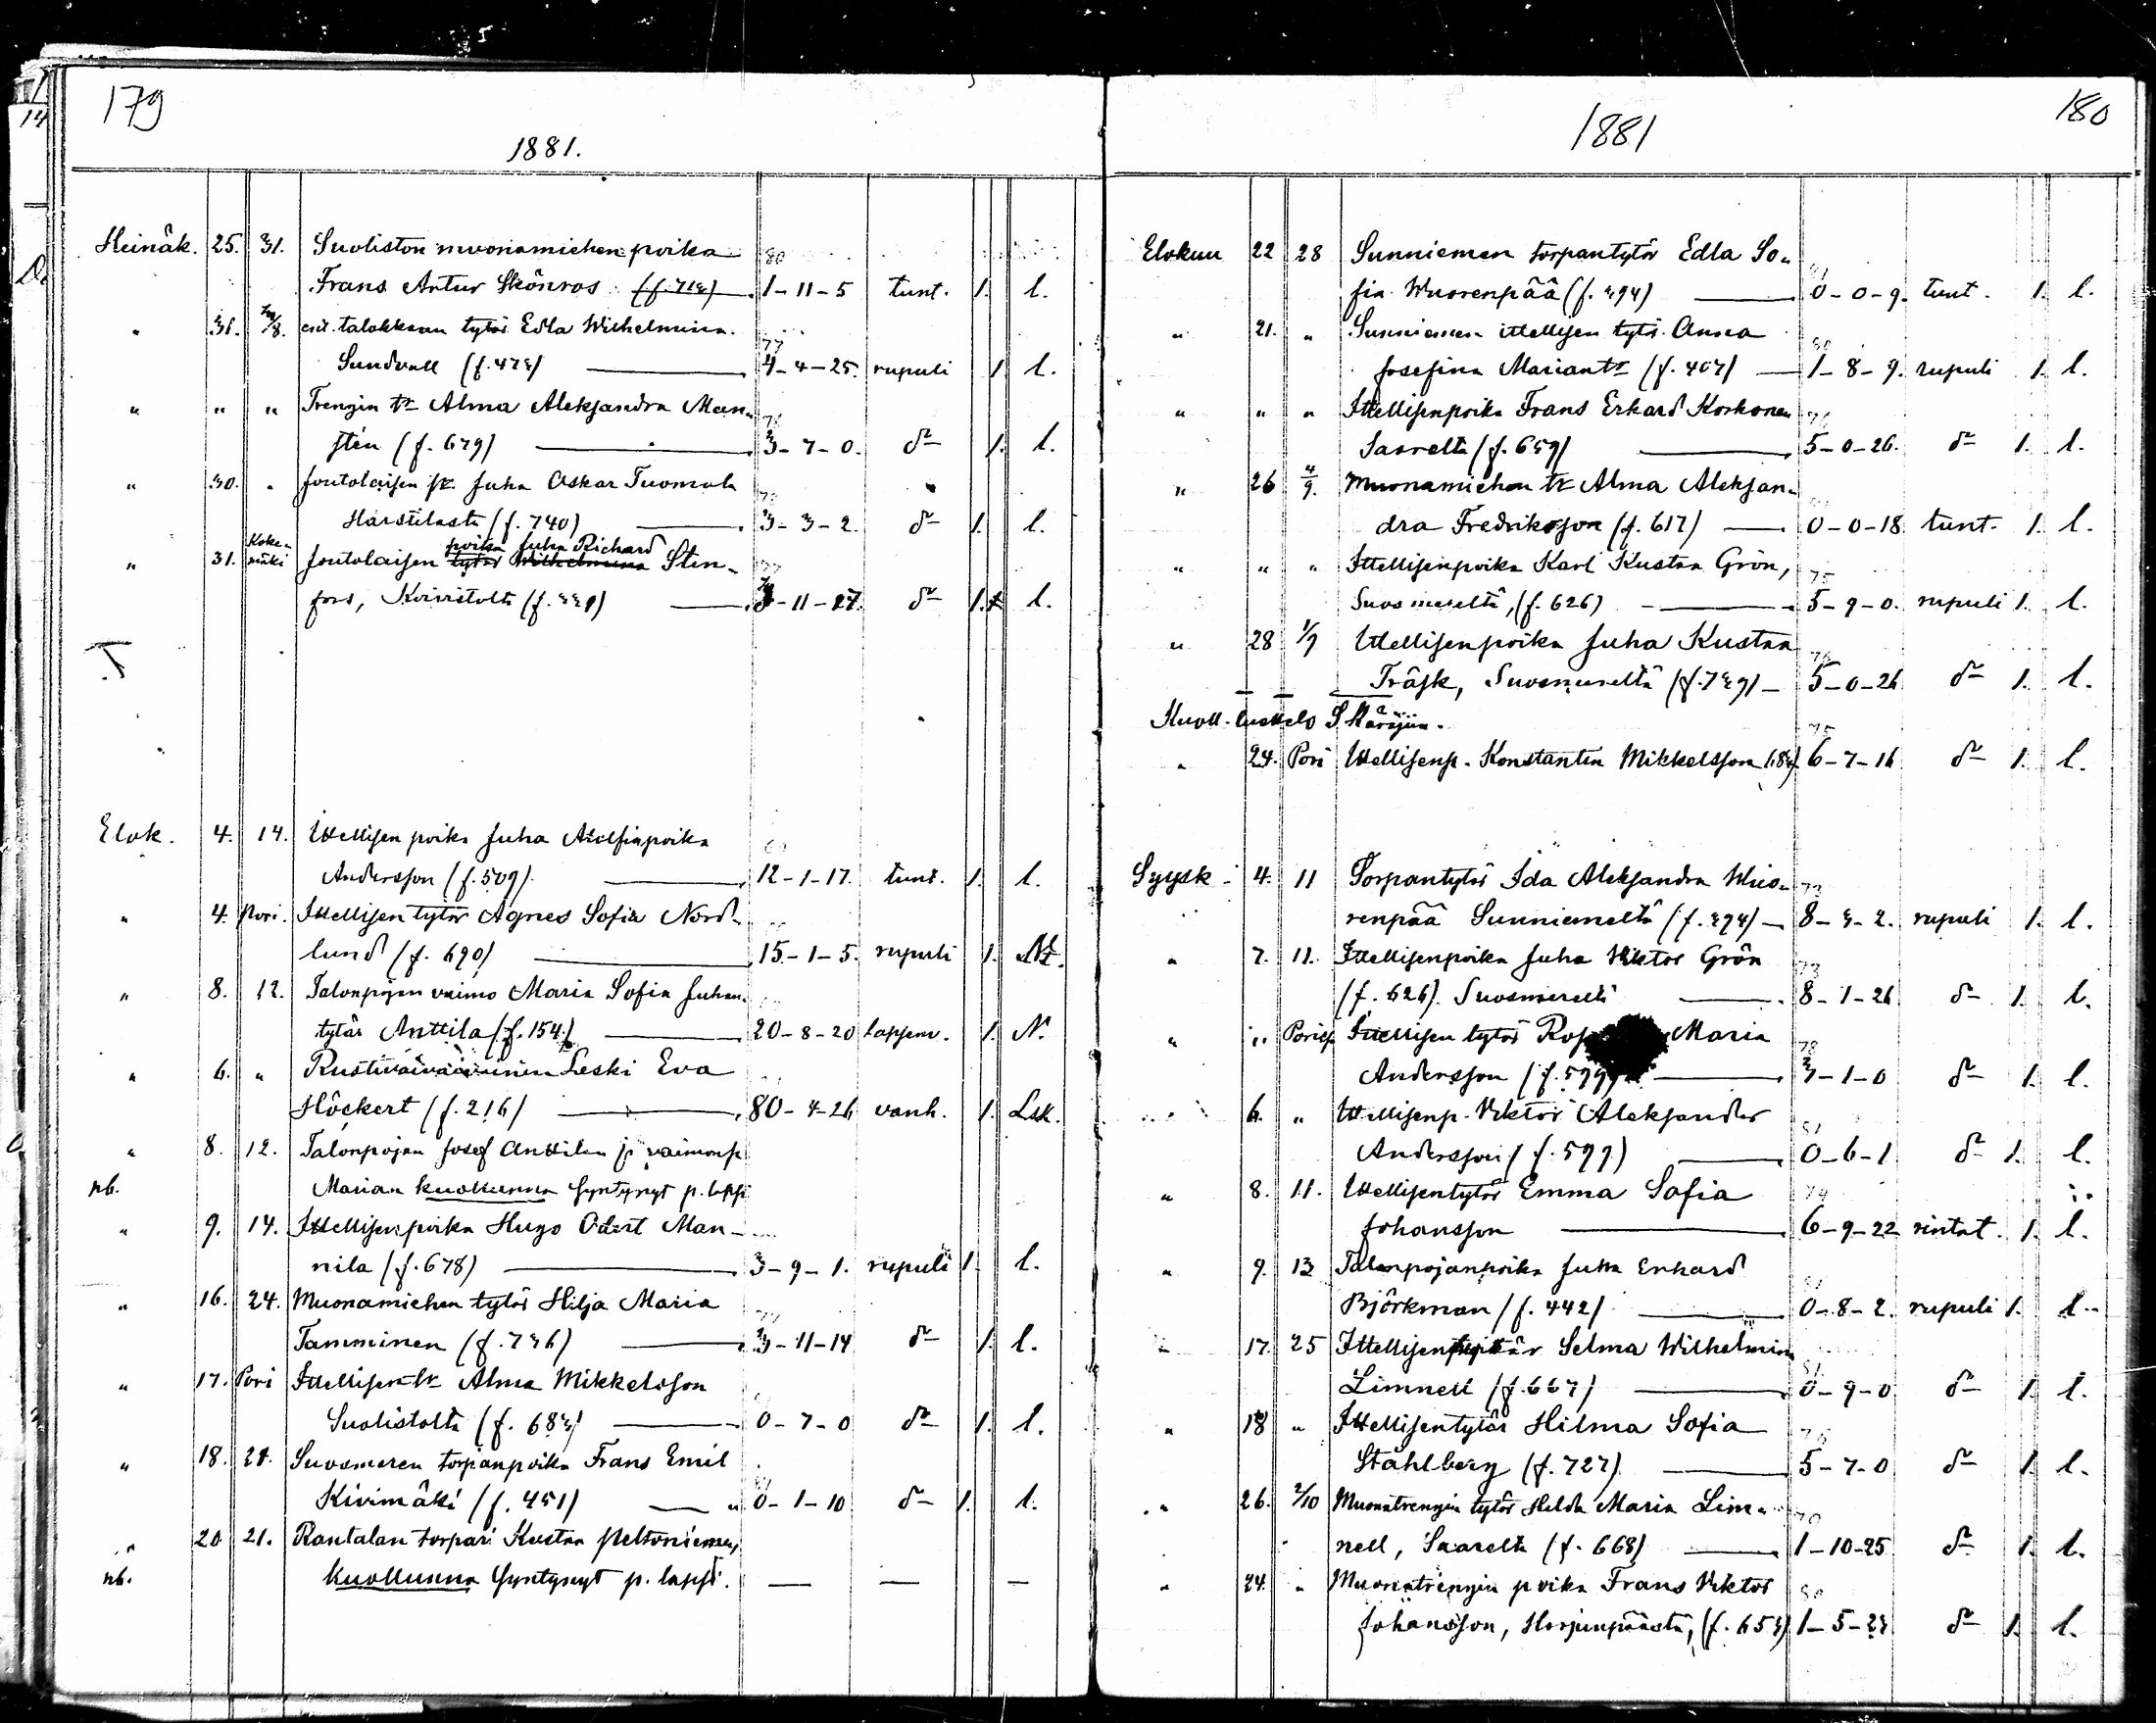 179
1881.
Heinäk. 25. 31. Suoliston muonamiehen poika
Frans Artur Skönros (f. 713) 1-11-5 tunt. 1. l.
" 31. 7/8. entl. talokkaan tytär Edla Wilhelmina
Sundvall (f. 473) 4-4-25. rupuli 1. l.
" " " Trengin tr Alma Aleksandra Mun-
sten (f. 679) 3-7-0. do 1. l.
" 30. " Joutolaisen p. Juha Oskar Tuomola
Harstilasta (f. 740) 3-3-2. do 1. l.
" 31. Kokemäki Joutolaisen tytär Wilhelmina poika Juha Richard Sten-
fors, Koivistolta (f. 339) 3-11-27. do 1. l.
Elok. 4. 14. Itellisen poika Juha Adolfinpoika
Andersson (f. 509). 12-1-17. tunt. 1. l.
" 4. Pori. Itellisen tytär Agnes Sofia Nord-
lund (f. 690) 15-1-5. rupuli 1.
" 8. 12. Talonpojan vaimo Maria Sofia Juhan-
tytär Anttila (f. 154) 20-8-20 lapsenv. 1. N.
" 6. " Leski Eva
Höckert (f. 216) 80-4-26 vanh. 1. Lsk.
" 8. 12. Talonpojan Josef Anttilan ja vaimonsa
nb. Marian kuolluna syntynyt p. lapsi
" 9. 14. Itellisen poika Hugo Man-
nila (f. 678) 3-9-1. rupuli 1. l.
" 16. 24. Muonamiehen tytär Hilja Maria
Tamminen (f. 736) 3-11-14 do 1. l.
" 17. Pori Itellisen tr Alma Mikkelsson
Suolistolta (f. 683) 0-7-0 do 1. l.
" 18. 21. Suosmeren torpanpoika Frans Emil
Kivimäki (f. 451) 0-1-10 do 1. l.
" 20 21. Rantalan torpari Kustaa Peltoniemen,
nb. kuolluna syntynyt p. lapsi.
1881
180
Elokuu 22 28 Sunniemen torpantytär Edla So-
fia Wuorenpää (f. 394) 0-0-9. tunt. 1. l.
" 21. " Sunniemen itellisen tytär Anna
Josefina Mariantr (f. 407) 1-8-9. rupuli 1. l.
" " " Itellisenpoika Frans Erhard Korhonen
Saarelta (f. 659) 5-0-26. do 1. l.
" 26 4/9. Muonamiehen tr Alma Aleksan-
dra Fredriksson (f. 617) 0-0-18. tunt. 1. l.
" " " Itellisenpoika Karl Kustaa Grön,
Suosmereltä, (f. 626) 5-9-0. rupuli 1. l.
" 28 1/9 Itellisenpoika Juha Kustaa
Träsk, Suosmereltä (f. 739) 5-0-26 do 1. l.
Kuoll. luettelo S. Käräjiin.
" 24. Pori Itellisenp. Konstantin Mikkelsson (683) 6-7-16 do 1. l.
Syysk. 4. 11 Torpantytär Ida Aleksandra Wuo-
renpää Sunniemeltä (f. 394) 8-3-2. rupuli 1. l.
" 7. 11. Itellisenpoika Juha Viktor Grön
(f. 626) Suosmereltä 8-1-26 do 1. l.
" " Itellisen tytär Maria
Andersson (f. 599) 3-1-0 do 1. l.
6. " Itellisenp. Viktor Aleksander
Andersson (f. 599) 0-6-1 do 1. l.
" 8. 11. Itellisentytär Emma Sofia
Johansson 6-9-22 rintat. 1. l.
" 9. 13 Talonpojanpoika Juha Erhard
Björkman (f. 442) 0-8-2. rupuli 1. l.
" 17. 25 Itellisentytär Selma Wilhelmina
Limnell (f. 667) 0-9-0 do 1. l.
" 18 " Itellisentytär Hilma Sofia
Ståhlberg (f. 727) 5-7-0 do 1. l.
" 26. 2/10 Muonatrengin tytär Hilda Maria Lim-
nell, Saarelta (f. 668) 1-10-25 do 1. l.
" 24. " Muonatrengin poika Frans Viktor
Johansson, Harjunpäästä, (f. 653) 1-5-23 do 1. l.